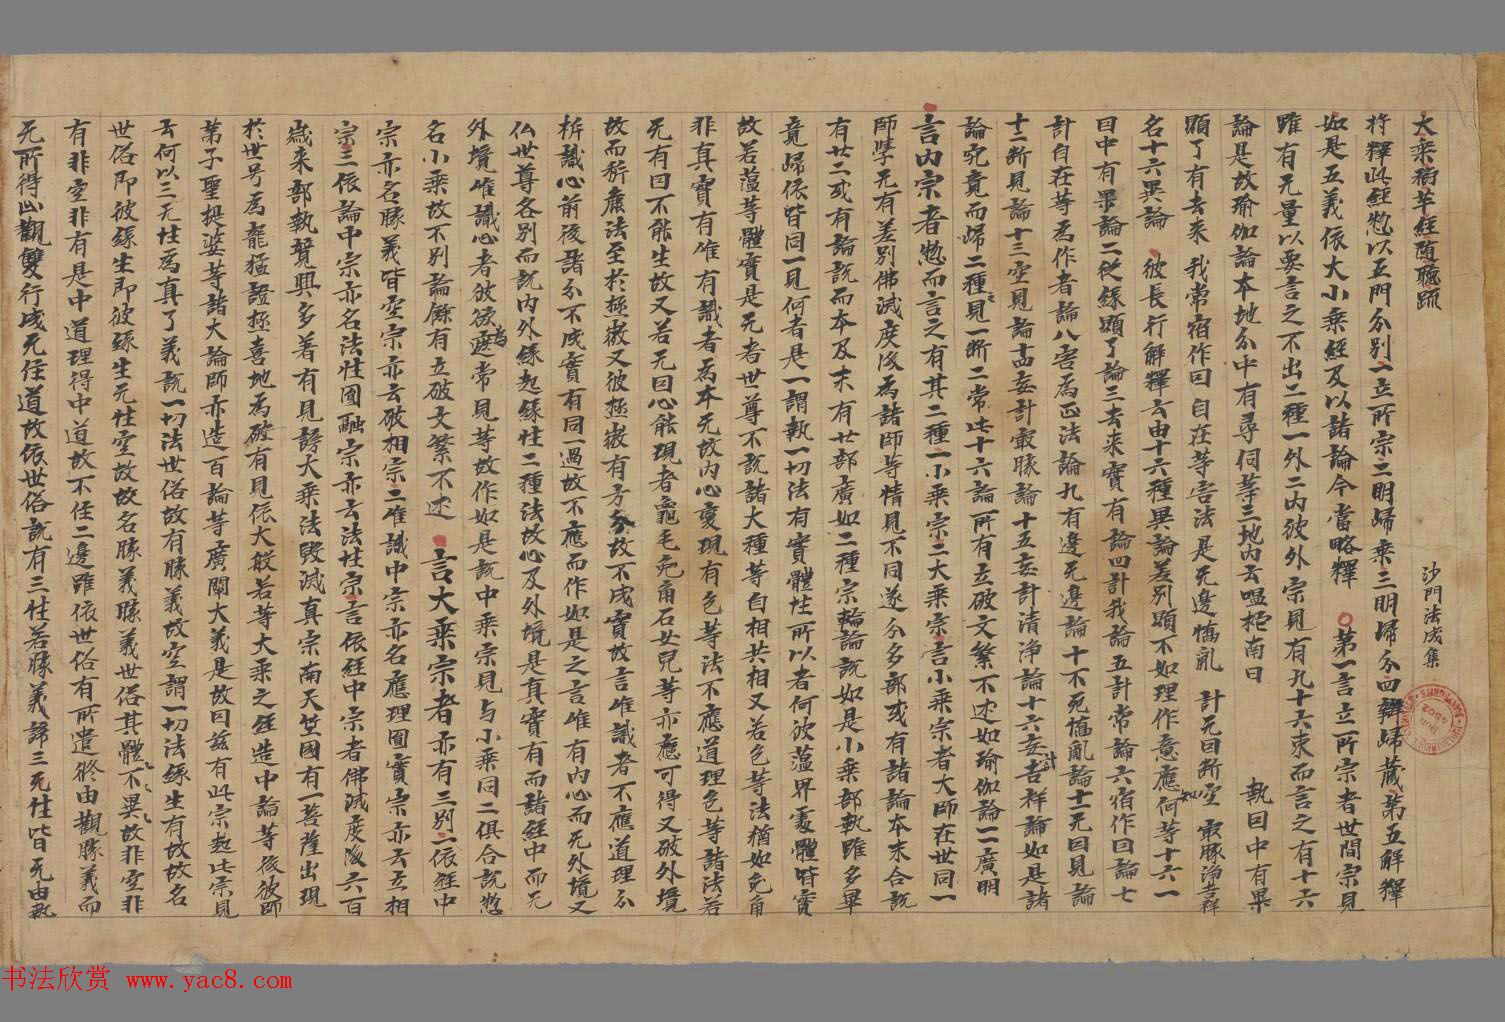 大乘稻芉經随聽䟽　沙門法成集
將釋此經惣以五門分別一立所宗二明歸乘三明歸分四辯歸藏第五解釋
如是五義依大小乘經及以諸論今當略釋　第一言立所宗者世間宗見
雖有无量以要言之不出二種一外二内彼外宗見有九十六束而言之有十六
論是故瑜伽論本地分中有尋伺等三地内云嗢柁南曰　執因中有果
顯了有去來　我常宿作因　自在等害法是无邊憍亂　計无因断空　最勝淨吉祥
名十六異論　彼長行解釋云由十六種異論差別顯不如理作意應知何等十六一
因中有果論二從緣顯了論三去來實有論四計我論五計常論六宿作因論七
計自在等為作者論八害為正法論九有邊无邊論十不死憍亂論十一无因見論
十二断見論十三空見論十四妄計最勝論十五妄計清淨論十六妄計吉祥論如是諸
論究竟而歸二種見一断二常此十六論所有立破文繁不述如瑜伽論一廣明
言内宗者惣而言之有其二種一小乘宗二大乘宗言小乘宗者大師在世同一
師學无有差別佛滅度後為諸師等情見不同遂分多部或有諸論本末合說
有廿二或有論說而本及末有廿部廣如二種宗輪論說如是小乘部執雖多畢
竟歸依皆同一見何者是一謂執一切法有實體性所以者何彼蘊界處體皆實
故若蘊等體實是无者世尊不說諸大種等自相共相又若色等法猶如兔角
非真實有唯有識者為本无故内心變現有色等法不應道理色等諸法若
无有因不能生故又若无因心能現者龜毛兔角石女兒等亦應可得又破外境
故而析麁法至於極微又彼極微有方分故不成實故言唯識者不應道理分
析識心前後諸分不成實有同一過故不應而作如是之言唯有内心而无外境又
仏世尊各別而說内外緣起緣性二種法故心及外境是真實有而諸經中而无
外境唯識心者彼欲為遮常見等故作如是說中乘宗見与小乘同二俱合說惣
名小乘故不別論餘有立破文繁不述　言大乘宗者亦有三別一依經中
宗亦名勝義皆空宗亦云破相宗二唯識中宗亦名應理圓實宗亦云立相
宗三依論中宗亦名法性圓融宗亦云法性宗言依經中宗者佛滅度後六百
歲來部執競興多著有見謗大乘法毀滅真宗南天竺國有一菩薩出現
於世号為龍猛證極喜地為破有見依大般若等大乘之經造中論等後彼師
弟子聖提婆等諸大論師亦造百論等廣闡大義是故曰茲有此宗起此宗見
云何以三无性為真了義說一切法世俗故有勝義故空謂一切法緣生有故故名
世俗即彼緣生即彼緣生无性空故故名勝義勝義世俗其體不異故非空非
有非空非有是中道理得中道故不住二邊雖依世俗有所遣修由觀勝義而
无所得此觀雙行成无住道故依世俗說有三性若勝義諦三无性皆无由執
书法欣赏 www.yac8.com